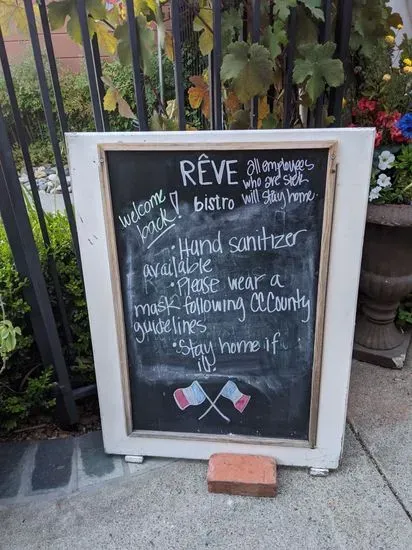 RÊVE
bistro
all employees
who are sick
will stay home.
welcome
back!
• Hand sanitizer
available
• Please wear a
mask following CC County
guidelines
• Stay home if
ill!